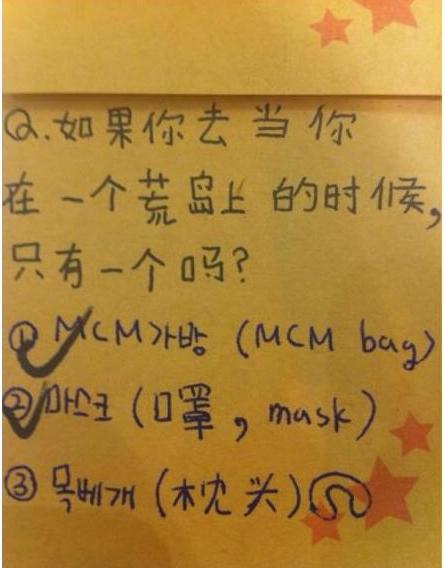 Q.如果你去当你
在一个荒岛上的时候,
只有一个吗?
① MCM가방 (MCM bag)
② 마스크 (口罩, mask)
③ 목베개 (枕头)